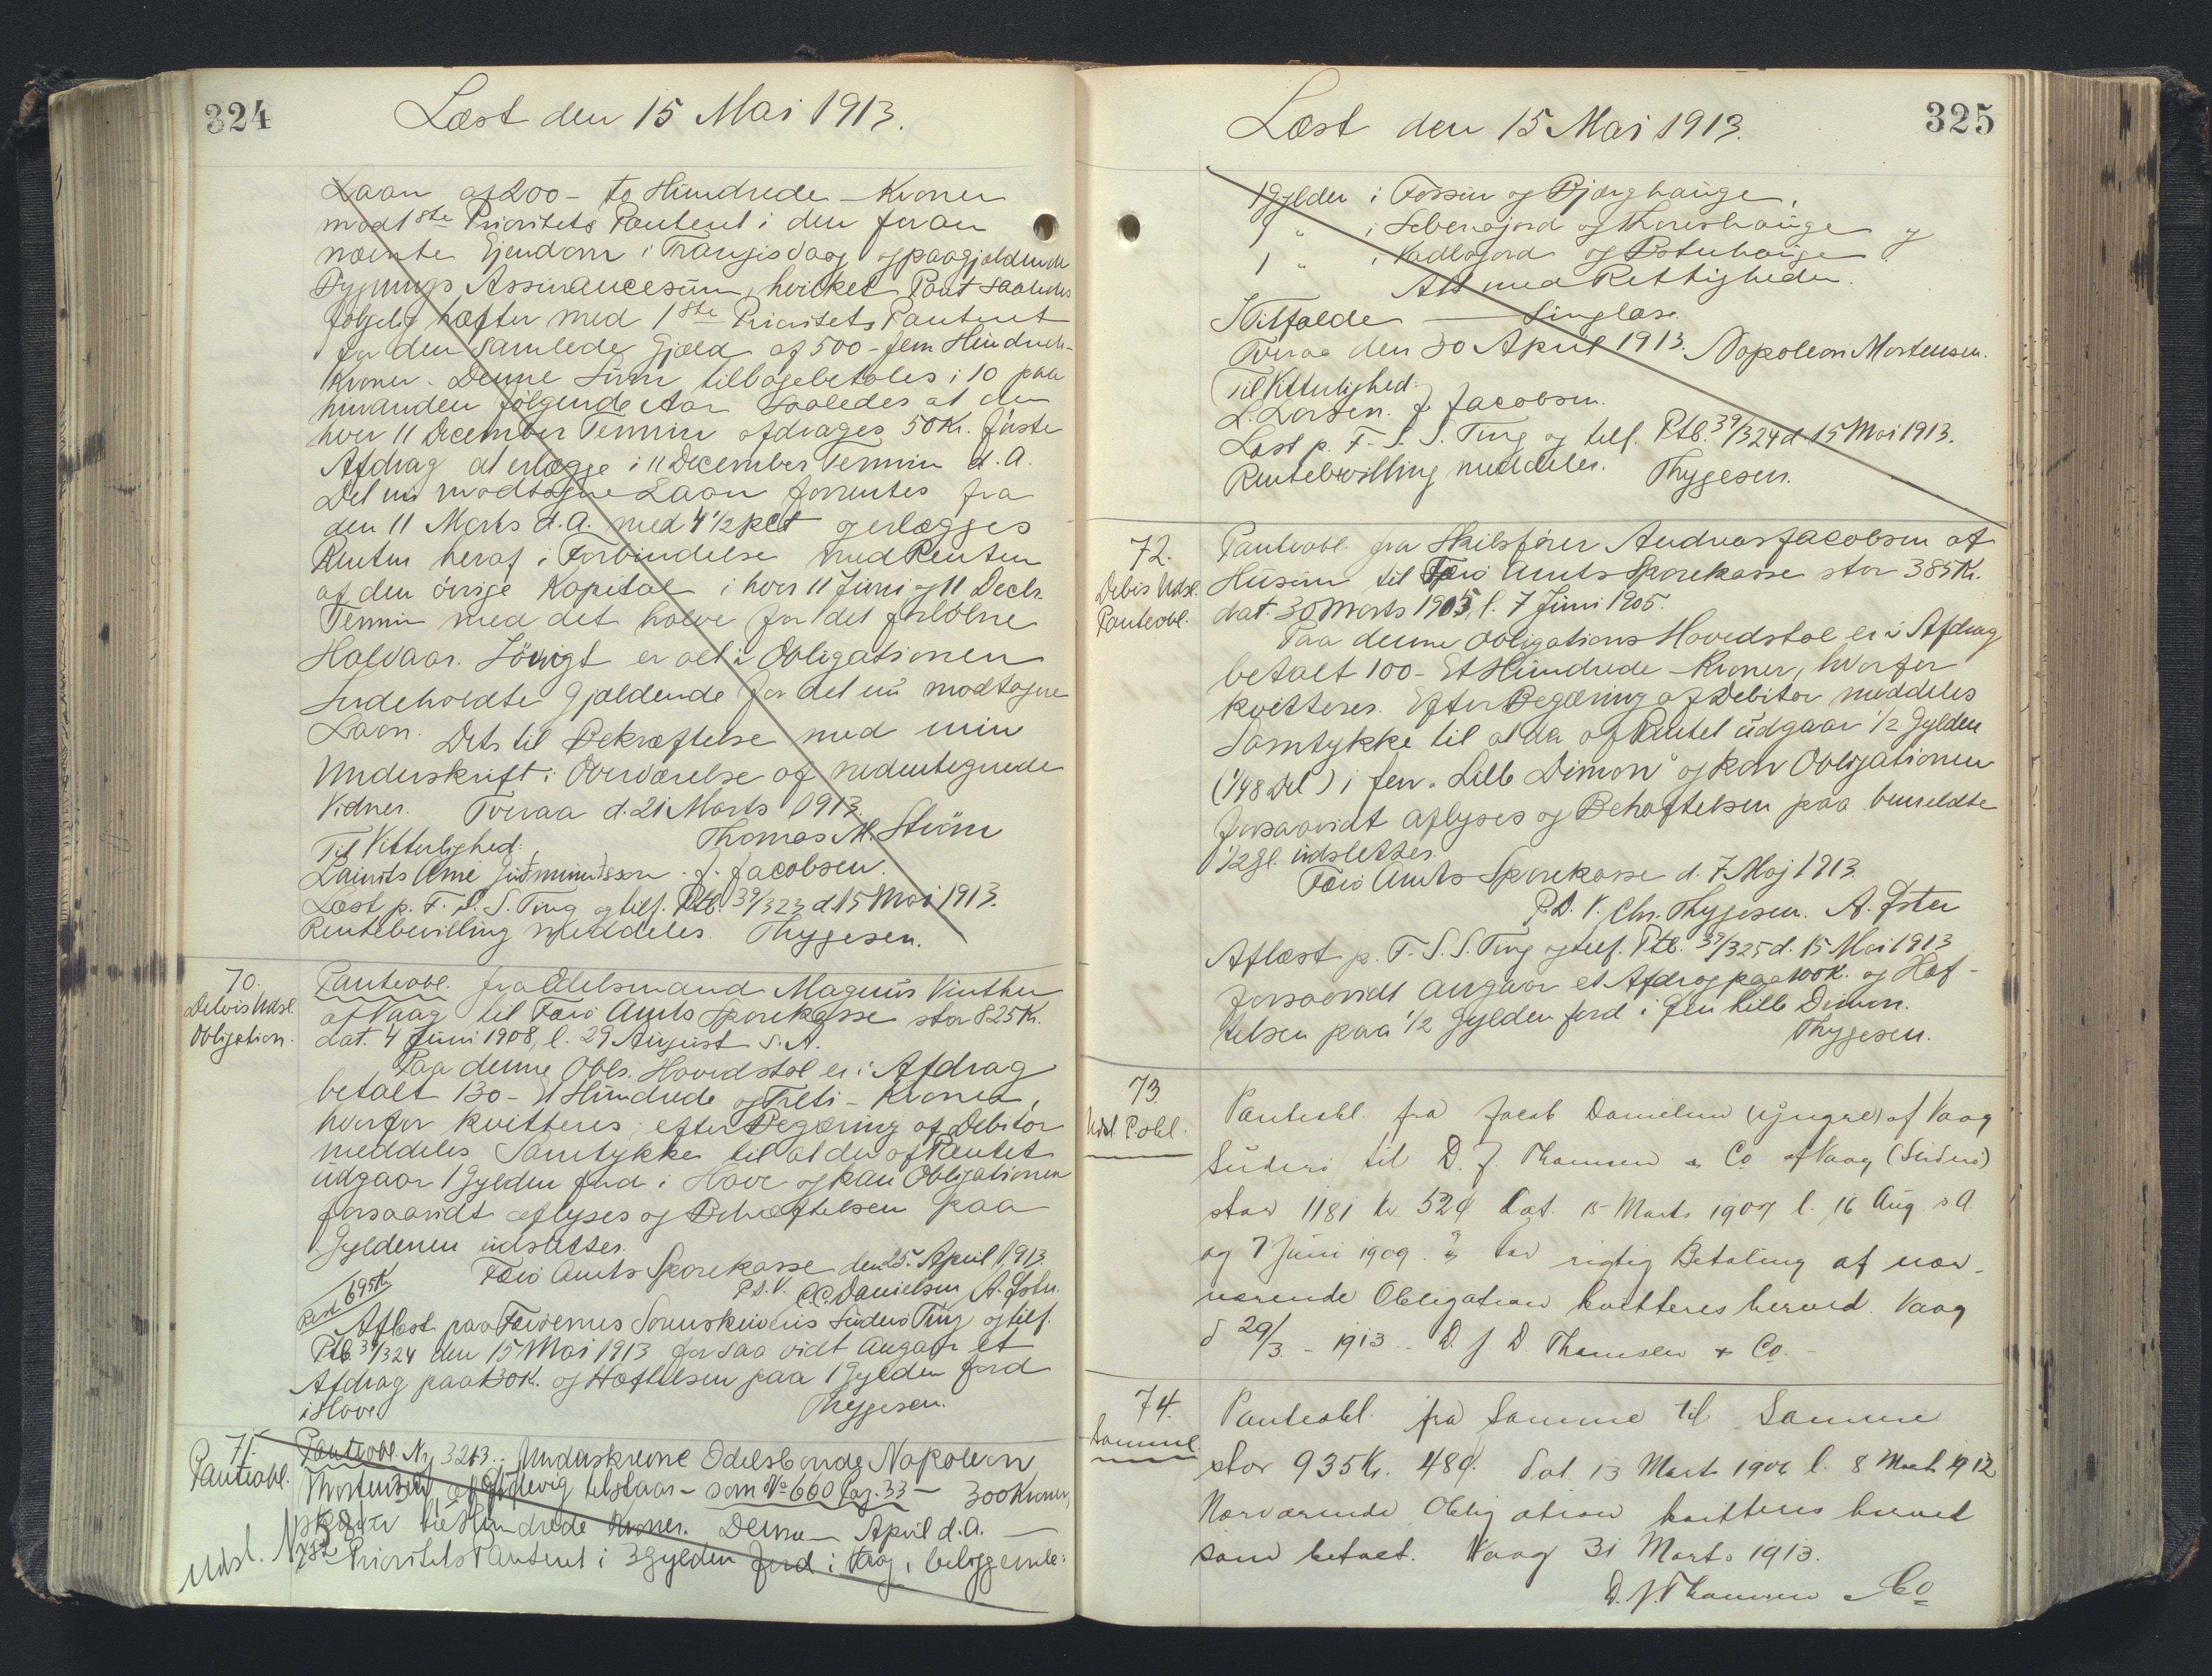 324
Læst den 15 Mai 1913.
Laan af 200 - to Hundrede - Kroner
mod 1ste Prioritets Panteret i den foran
nævnte Ejendom i Trangisvaag og paagjældende
Bygnings Assurancesum, hvilket Pant saaledes
følgelig hæfter med 1ste Prioritets Panteret
for den samlede Gjæld af 500 - fem Hundrede -
Kroner. Denne Sum tilbagebetales i 10 paa
hinanden følgende Aar saaledes at der
hver 11 December Termin afdrages 50 Kr. første
Afdrag at erlægge i 11 December Termin d. A.
Det nu modtagne Laan forrentes fra
den 11 Marts d. A. med 4 1/2 pCt og erlægges
Renten heraf i Forbindelse med Renten
af den øvrige Kapital i hver 11 Juni og 11 Decbr.
Termin med det halve for det forløbne
Halvaar. Iøvrigt er alt i Obligationen
Indeholdte Gjældende for det nu modtagne
Laan. Dets til Bekræftelse med min
Underskrift i Overværelse af medentegnede
Vidner. Tveraa d. 21 Marts 1913.
Til Vitterlighed: Thomas M. Strøm
Laurits Arne Gudmundsson. J. Jacobsen.
Læst p. F. S. S. Ting og tilf. Ptb. 39/323 d. 15 Mai 1913.
Rentebevilling meddeles. Thygesen.
70.
Delvis Udsl.
Obligation.
Panteobl. fra Odelsmand Magnus Vinther
af Vaag til Færø Amts Sparekasse stor 825 Kr.
dat. 4 Juni 1908, l. 29 August s. A.
Paa denne Obls. Hovedstol er i Afdrag
betalt 130 - Et Hundrede og Treti - Kroner,
hvorfor kvitteres, efter Begæring af Debitor
meddeles Samtykke til at der af Pantet
udgaar 1 Gylden Jord i Hove og kan Obligationen
forsaavidt aflyses og Behæftelsen paa
Gyldenen udslettes.
Færø Amts Sparekasse den 25. April 1913.
Rest 695 Kr
P. D. V. C. C. Danielsen A. Øster.
Aflæst paa Færøernes Sorenskriveris Suderø Ting og tilf.
Ptb. 39/324 den 15 Mai 1913 for saa vidt angaar et
Afdrag paa 130 K. og Hæftelsen paa 1 Gylden Jord
i Hove
Thygesen.
71.
Panteobl.
Udsl. N
Panteobl. Nr 3213. Underskrevne Odelsbonde Napoleon
Mortensen, af tilstaar - som No 660 Pag. 33 - 300 Kroner,
skriver tre Hundrede Kroner. Denne April d. A. -
1ste Prioritets Panteret i 3 Gylden Jord i Vaag, beliggende:
325
Læst den 15 Mai 1913.
1 Gylden i Fossun og Bjærghauge,
1 " i og Thoreshauge og
1 " i og
Alt med Rettigheder.
I Tilfælde — Singlasr.
Tveraa den 30 April 1913. Napoleon Mortensen.
Til Vitterlighed:
L. Larsen. J. Jacobsen.
Læst p. F. S. S. Ting og tilf. Ptb. 39/324 d. 15 Mai 1913.
Rentebevilling meddeles. Thygesen.
72.
Delvis Udsl.
Panteobl.
Panteobl. fra Skibsfører Andreas Jacobsen af
Husum til Færø Amts Sparekasse stor 385 Kr.
dat. 30 Marts 1905, l. 7 Juni 1905.
Paa denne Obligations Hovedstol er i Afdrag
betalt 100 - Et Hundrede - Kroner, hvorfor
kvitteres. Efter Begæring af Debitor meddeles
Samtykke til at der af Pantet udgaar 1/2 Gylden
(1/48 Del) i fen. "Lille Dimon" og kan Obligationen
forsaavidt aflyses og Behæftelsen paa bemeldte
1/2 Gl. udslettes.
Færø Amts Sparekasse d. 7 Maj 1913.
P. D. V. Chr. Thygesen. A. Øster
Aflæst p. F. S. S. Ting og tilf. Ptb. 39/325 d. 15 Mai 1913
forsaavidt angaar et Afdrag paa 100 K. og Hæf-
telsen paa 1/2 Gylden Jord i fen Lille Dimon.
Thygesen.
73
Udsl. P.obl.
Panteobl. fra Jacob Danielsen (yngre) af Vaag
Suderø til D. J. Thomsen & Co af Vaag (Suderø)
stor 1181 Kr 52 Ø. dat. 15 Marts 1907 l. 16 Aug. s. A.
og 7 Juni 1909. For rigtig Betaling af nær-
værende Obligation kvitteres herved. Vaag
d 29/3 - 1913. D. J. D. Thomsen & Co. -
74.
Samme
Panteobl. fra Samme til Samme
stor 935 Kr. 48 Ø. dat. 13 Marts 1906 l. 8 Marts 1912
Nærværende Obligation kvitteres herved
som betalt. Vaag 31 Marts 1913.
D. J. Thomsen & Co